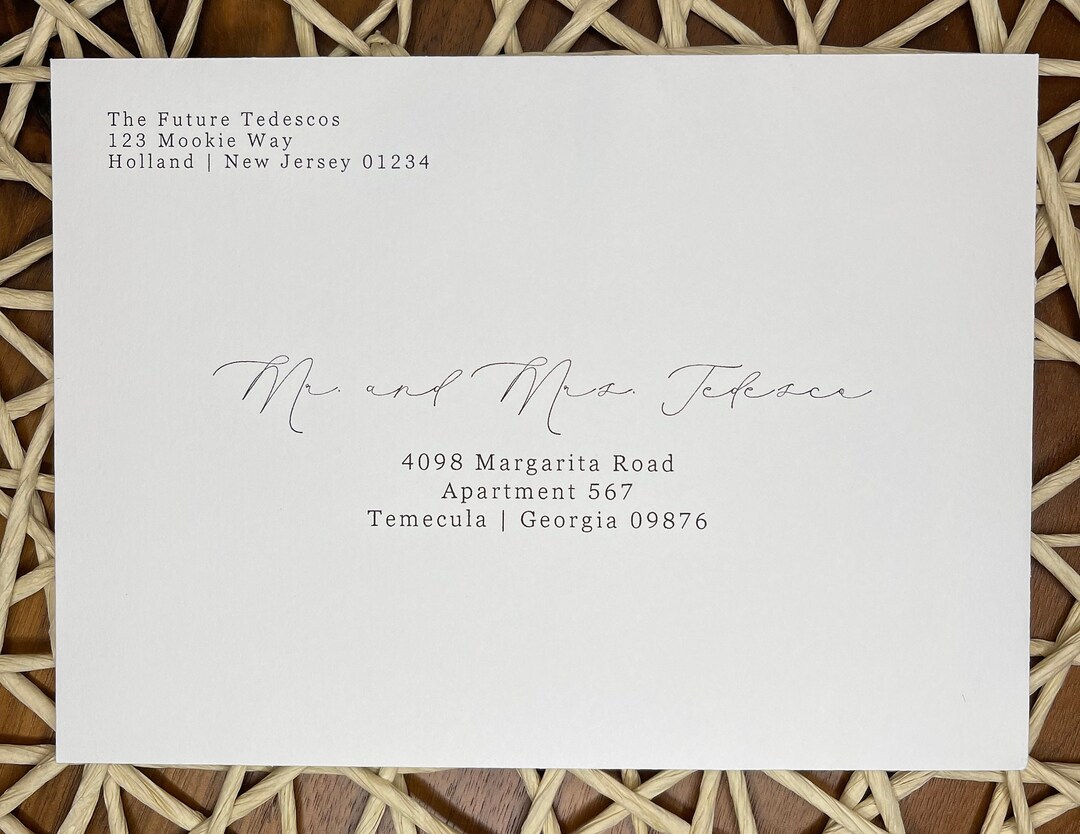 The Future Tedescos
123 Mookie Way
Holland | New Jersey 01234
Mr. and Mrs. Tedesco
4098 Margarita Road
Apartment 567
Temecula | Georgia 09876